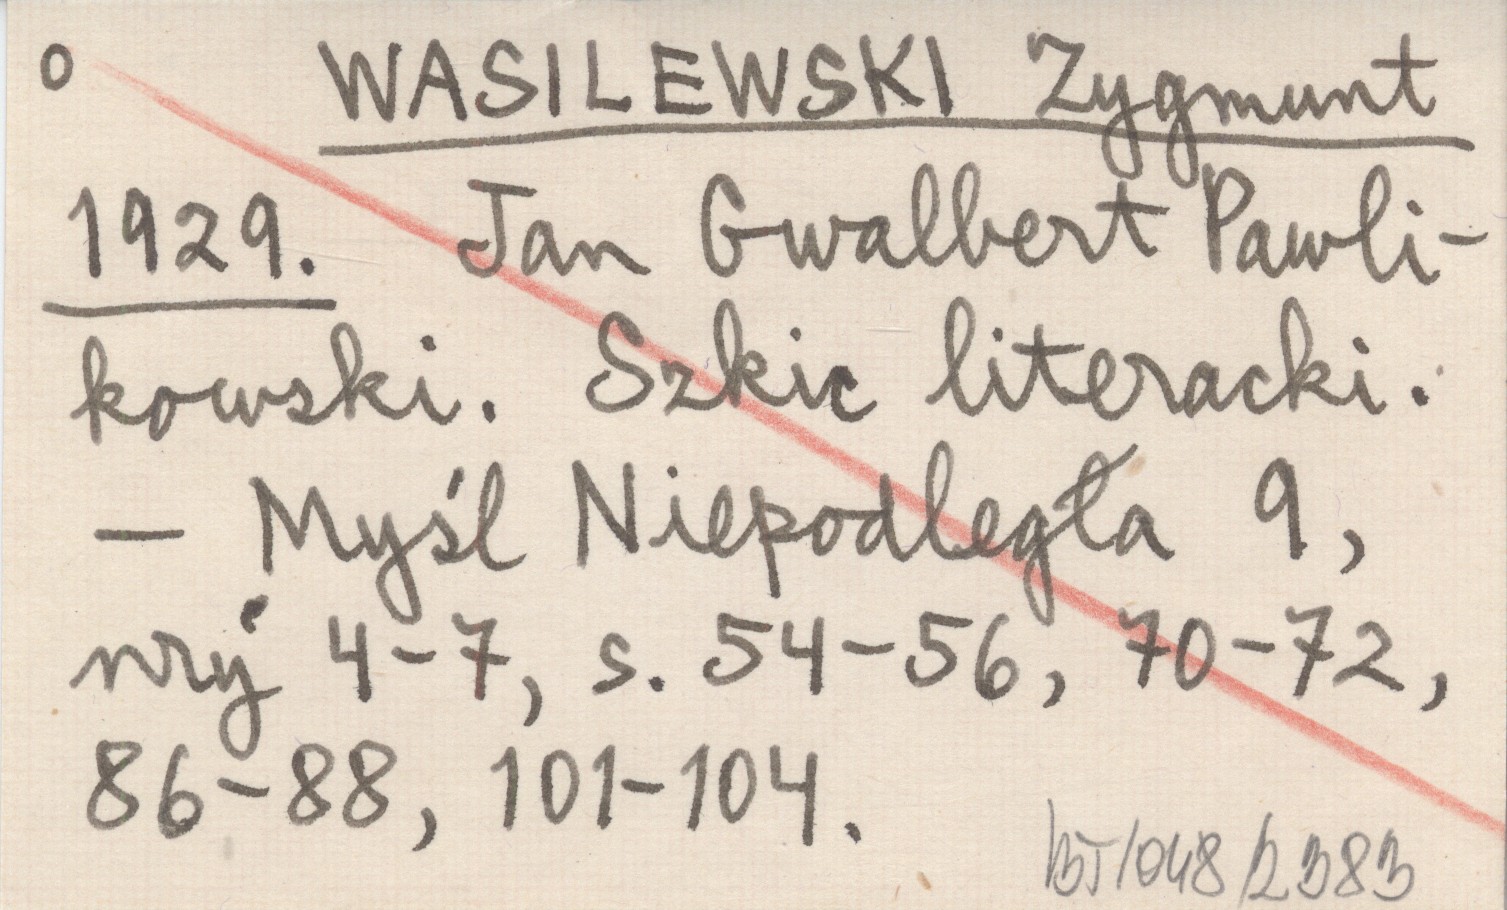 o WASILEWSKI Zygmunt
1929. Jan Gwalbert Pawli-
kowski. Szkic literacki.
— Myśl Niepodległa 9,
nry 4-7, s. 54-56, 70-72,
86-88, 101-104.
BJ/048/2383